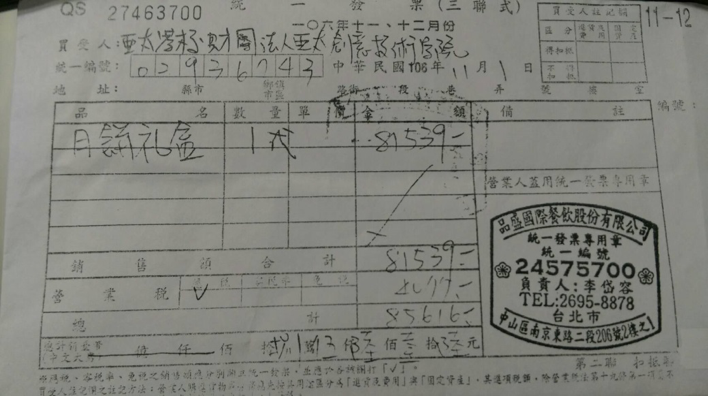 QS 27463700 統一發票(三聯式)
一〇六年十一、十二月份
11-12
買受人:亞太學校財團法人亞太創意技術學院
統一編號: 02936743 中華民國106年11月1日
地址: 縣市 路街 段 巷 弄 號 樓 室
買受人註記欄
區分
得扣抵
不得扣抵
編號:
品名 數量 單價 金額 備註
月餅禮盒 1式 81539-
營業人蓋用統一發票專用章
銷售額合計 81539-
營業稅 ✓ 4077-
總計 85616-
億 仟 佰 拾 萬 仟 佰 拾 元
品盛國際餐飲股份有限公司
統一發票專用章
統一編號
24575700
負責人:李岱容
TEL:2695-8878
台北市
中山區南京東路二段206號2樓之1
第二聯 扣抵聯